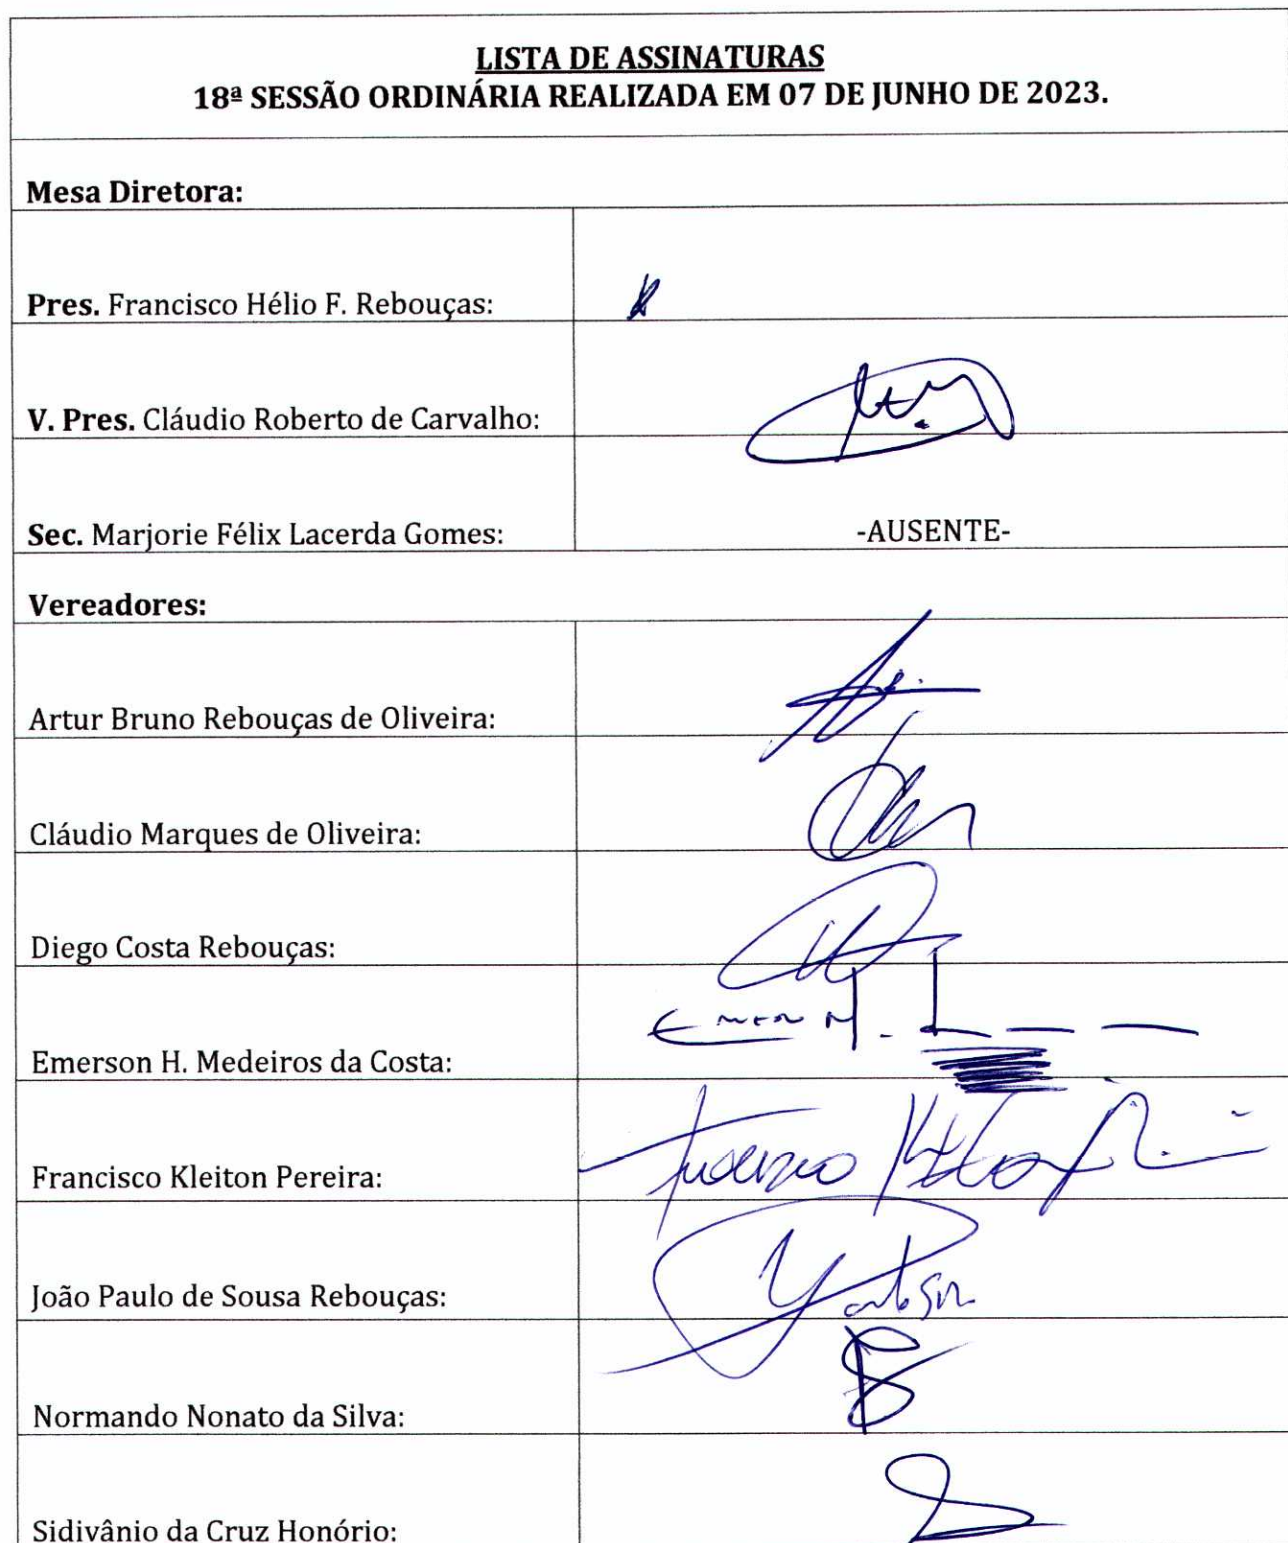 LISTA DE ASSINATURAS
18ª SESSÃO ORDINÁRIA REALIZADA EM 07 DE JUNHO DE 2023.
Mesa Diretora:
Pres. Francisco Hélio F. Rebouças:
V. Pres. Cláudio Roberto de Carvalho:
Sec. Marjorie Félix Lacerda Gomes: -AUSENTE-
Vereadores:
Artur Bruno Rebouças de Oliveira:
Cláudio Marques de Oliveira:
Diego Costa Rebouças:
Emerson H. Medeiros da Costa:
Francisco Kleiton Pereira:
João Paulo de Sousa Rebouças:
Normando Nonato da Silva:
Sidivânio da Cruz Honório: